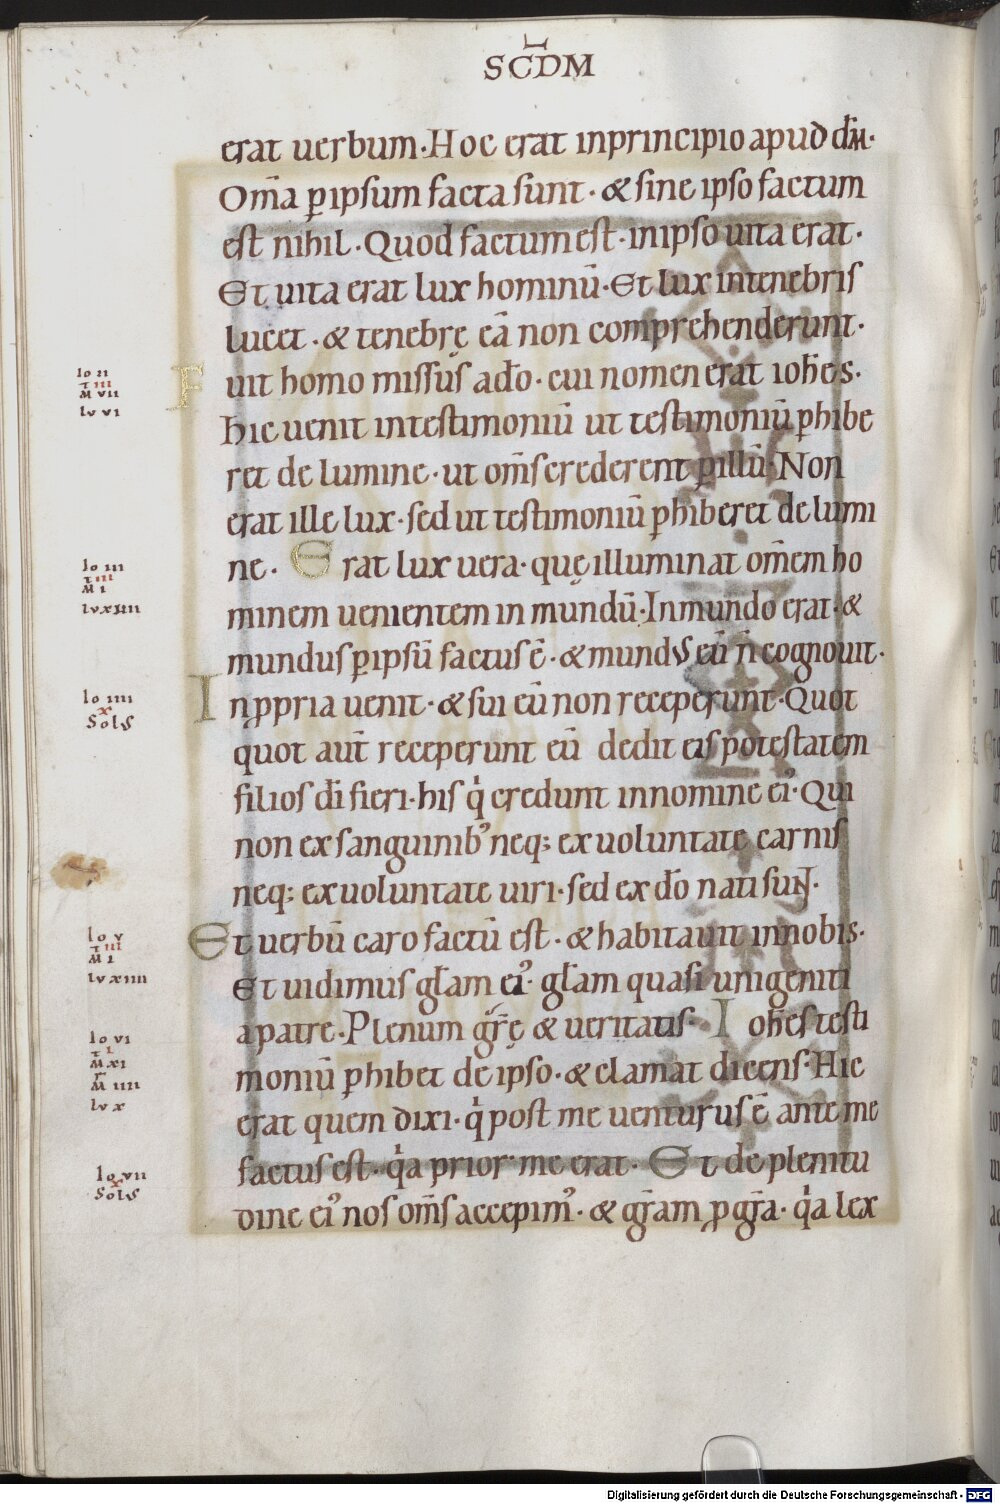 SCDM
erat uerbum. Hoc erat inprincipio apud dm̄.
Om̄a p̱ipsum facta sunt. & sine ipso factum
est nihil. Quod factum est. inipso uita erat.
Et uita erat lux hominū. Et lux intenebris
lucet. & tenebrę eā non comprehenderunt.
Fuit homo missus ad̄o. cui nomen erat ioh̄es.
hic uenit intestimoniū ut testimoniū p̱hibe
ret de lumine. ut om̄s crederent p̱illū. Non
erat ille lux. sed ut testimoniū p̱hiberet de lumi
ne. Erat lux uera. quę illuminat om̄em ho
minem uenientem in mundū. Inmundo erat. &
mundus p̱ipsū factus ē. & mundus eū n̄ cognouit.
In p̱pria uenit. & sui eū non receperunt. Quot
quot aut̄ receperunt eū dedit eis potestatem
filios dī fieri. his q̍ credunt innomine ei᾽. Qui
non ex sanguinib᾽ neq; ex uoluntate carnis
neq; ex uoluntate uiri. sed ex d̄o nati sunt.
Et uerbū caro factū est. & habitauit innobis.
Et uidimus gl̄am ei᾽. gl̄am quasi unigeniti
apatre. Plenum gr̄ę & ueritatis. Ioh̄es testi
moniū p̱hibet de ipso. & clamat dicens. Hic
erat quem dixi. q̍ post me uenturus ē ante me
factus est. q̍a prior me erat. Et de plenitu
dine ei᾽ nos om̄s accepim᾽. & gr̄am p̱ gr̄a. q̍a lex
Io II
T III
M VII
LV VI
Io III
T III
M I
LV XIIII
Io IIII
X
SoLV
Io V
T III
M I
LV XIIII
Io VI
T I
M XI
M IIII
LV X
Io VII
X
SoLV
Digitalisierung gefördert durch die Deutsche Forschungsgemeinschaft - DFG